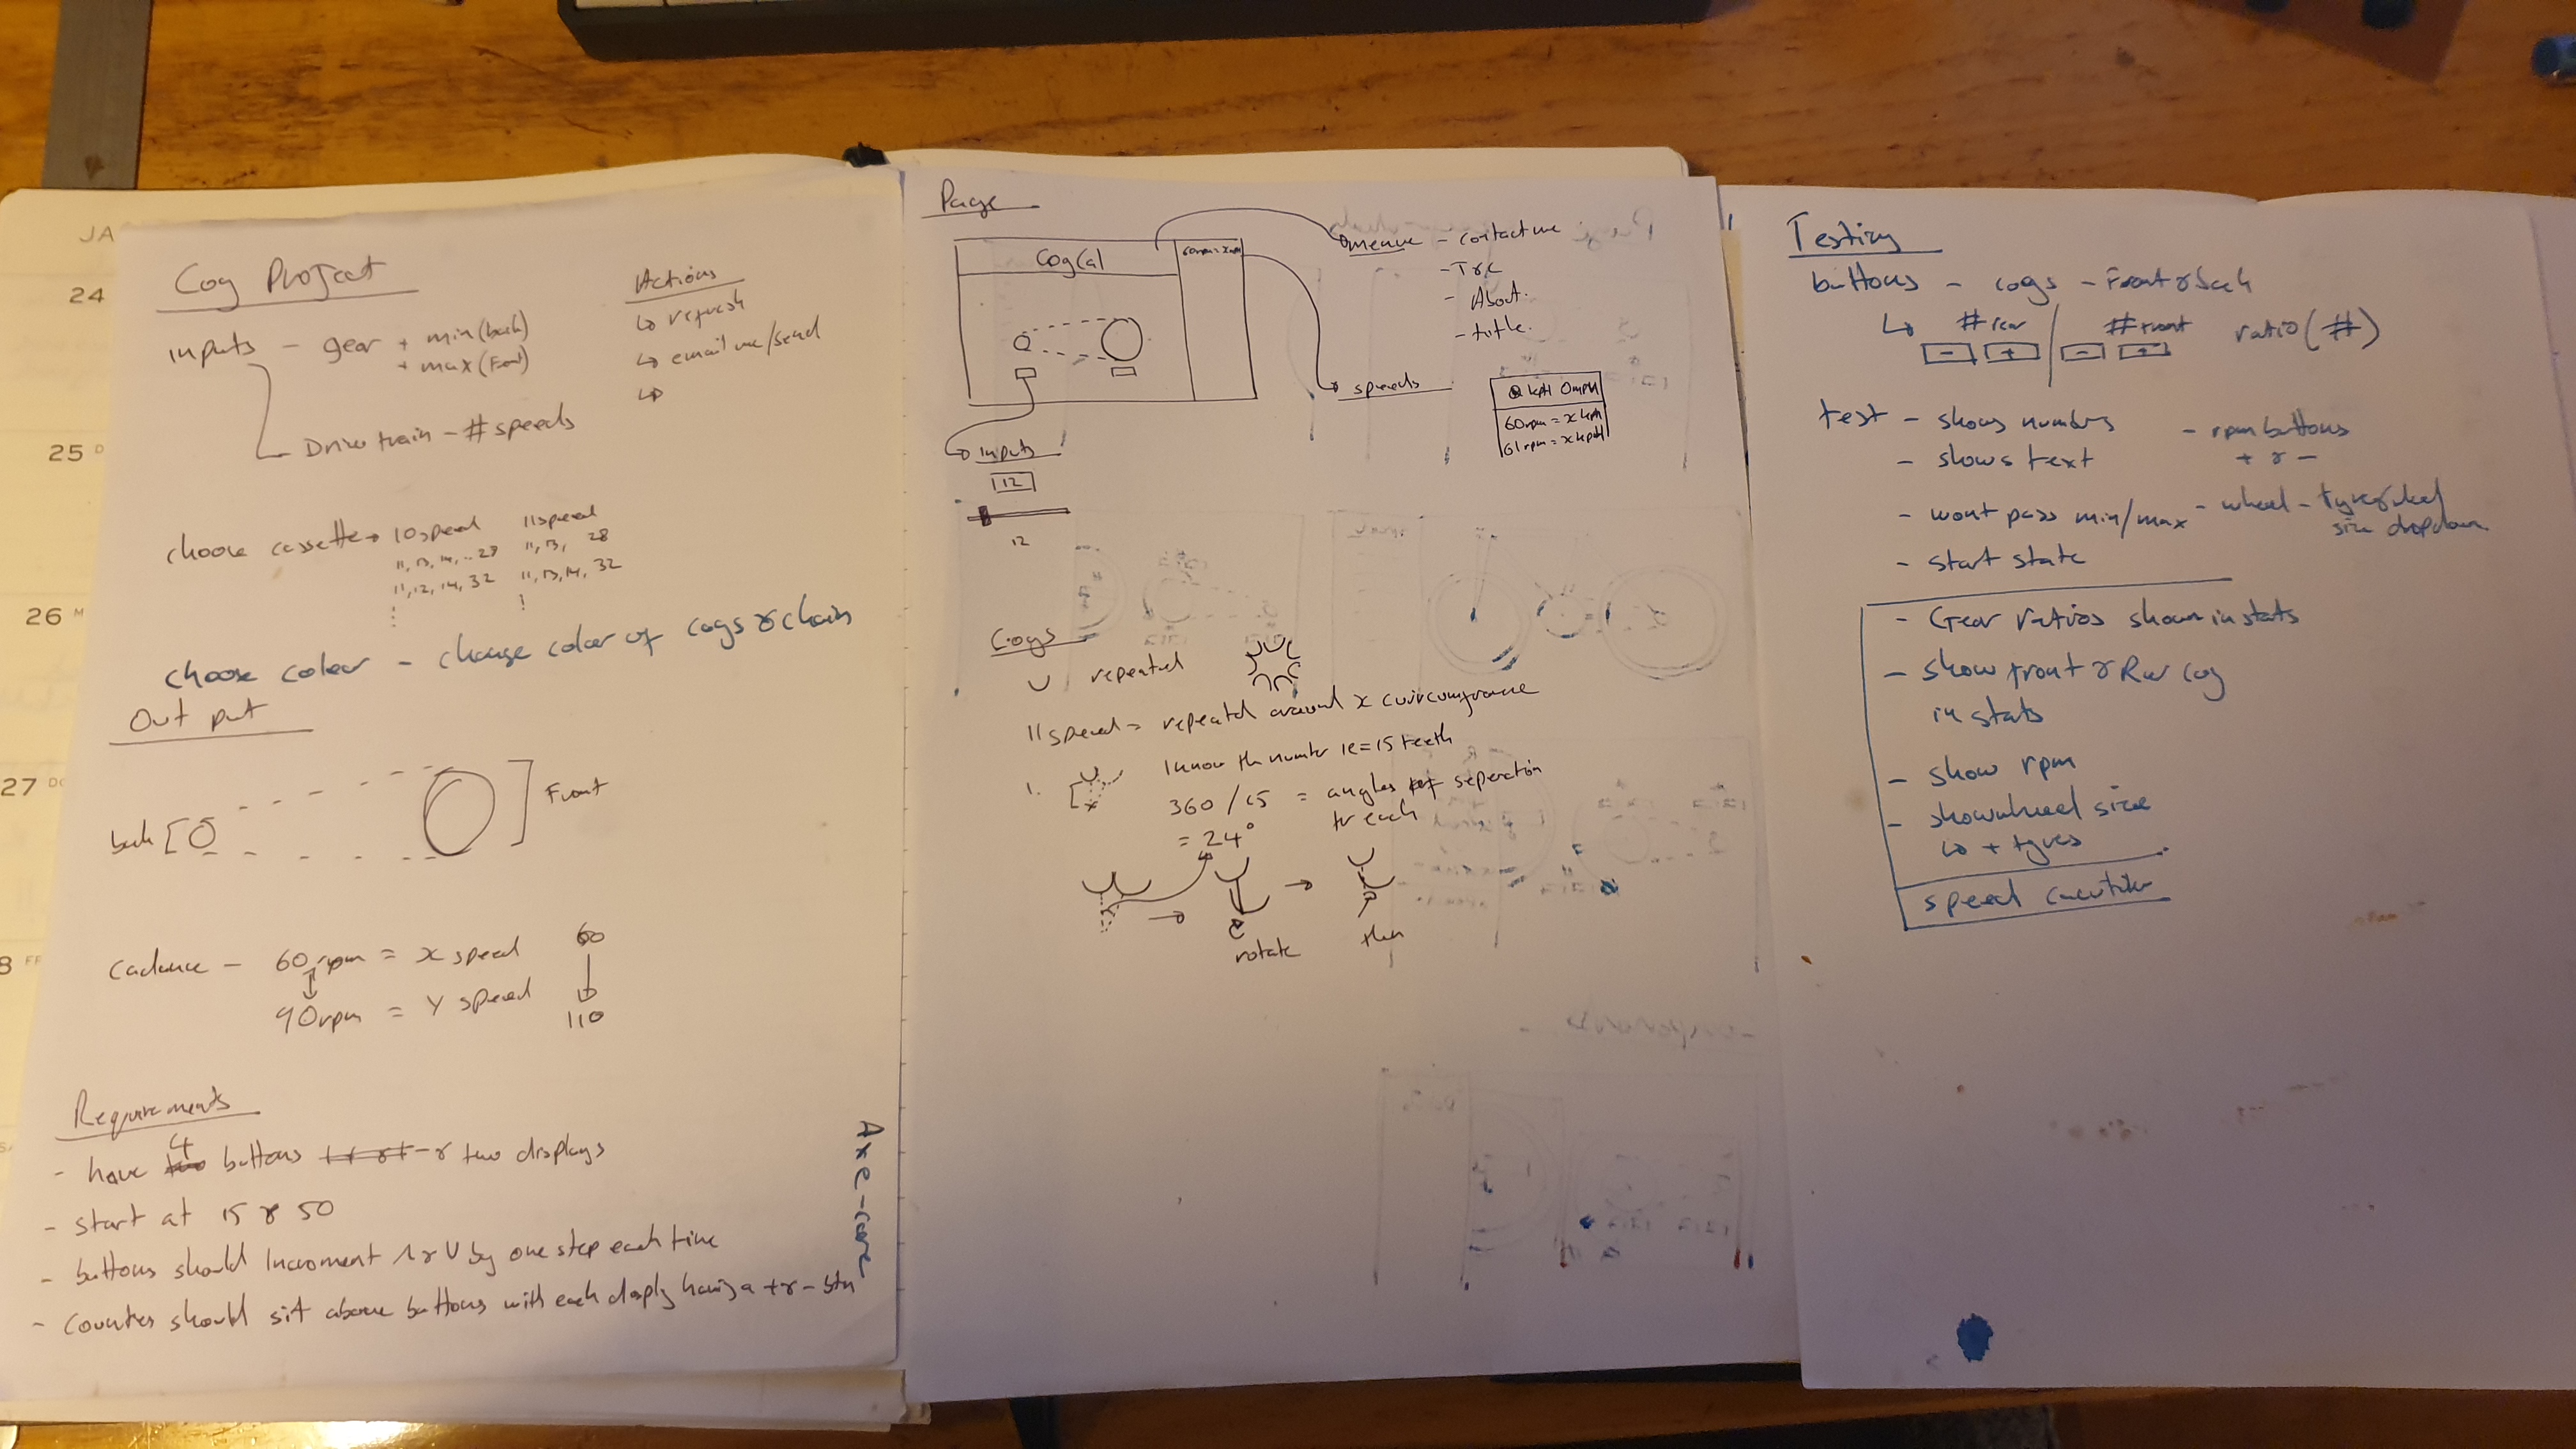 JA
24
25 D
26 M
27 D
8 F
Cog Project
inputs - gear + min (back)
+ max (Front)
Drive train - # speeds
Actions
↳ request
↳ email me/send
↳
choose cassette → 10 speed 11 speed
11, 13, 14, .. 28 11, 13, 28
11, 12, 14, 32 11, 13, 14, 32
choose color - change color of cogs & chain
Out put
back [
] Front
Cadence - 60rpm = x speed 60
↓
90rpm = Y speed 110
Requirements
- have 4 buttons + & - & two displays
- start at 15 & 50
- buttons should increment ∧ & ∨ by one step each time
- counters should sit above buttons with each display having a + & - btn
Page
Cog Cal
→ menue - contact me
- T&C
- About
- title.
↳ inputs
↳ speeds
0 kpH 0 mpH
60rpm = x kpH
61rpm = x kpH
12
12
Cogs
∪ repeated
11 speed → repeated around x circumfrance
1.
I know the number ie = 15 teeth
360 / 15 = angles of seperation
= 24° for each
rotate
then
Testing
buttons - cogs - Front & back
↳ # rear / # front ratio (#)
[-] [+] [-] [+]
test - shows numbers - rpm buttons
- shows text + & -
- wont pass min/max - wheel - tyre & wheel
size dropdown
- start state
- Gear ratios shown in stats
- show front & Rear cog
in stats
- show rpm
- show wheel size
↳ + tyres
speed